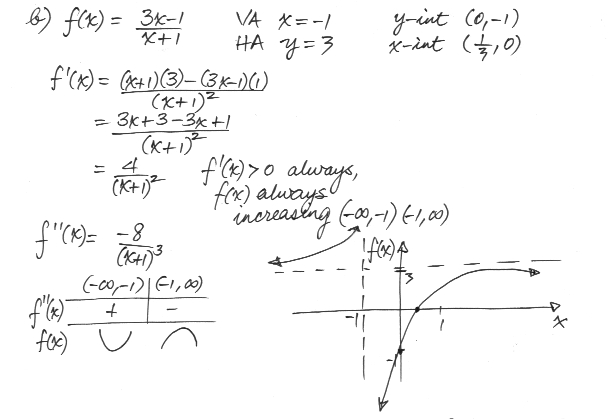 b) f(x) = (3x-1)/(x+1)   VA x=-1   y-int (0,-1)
HA y=3   x-int (1/3,0)
f'(x) = ((x+1)(3)-(3x-1)(1))/(x+1)²
= (3x+3-3x+1)/(x+1)²
= 4/(x+1)²   f'(x)>0 always,
f(x) always
increasing (-∞,-1) (-1,∞)
f''(x) = -8/(x+1)³
(-∞,-1) (-1,∞)
f''(x) + -
f(x)
f(x)
3
-1 1 x
-1